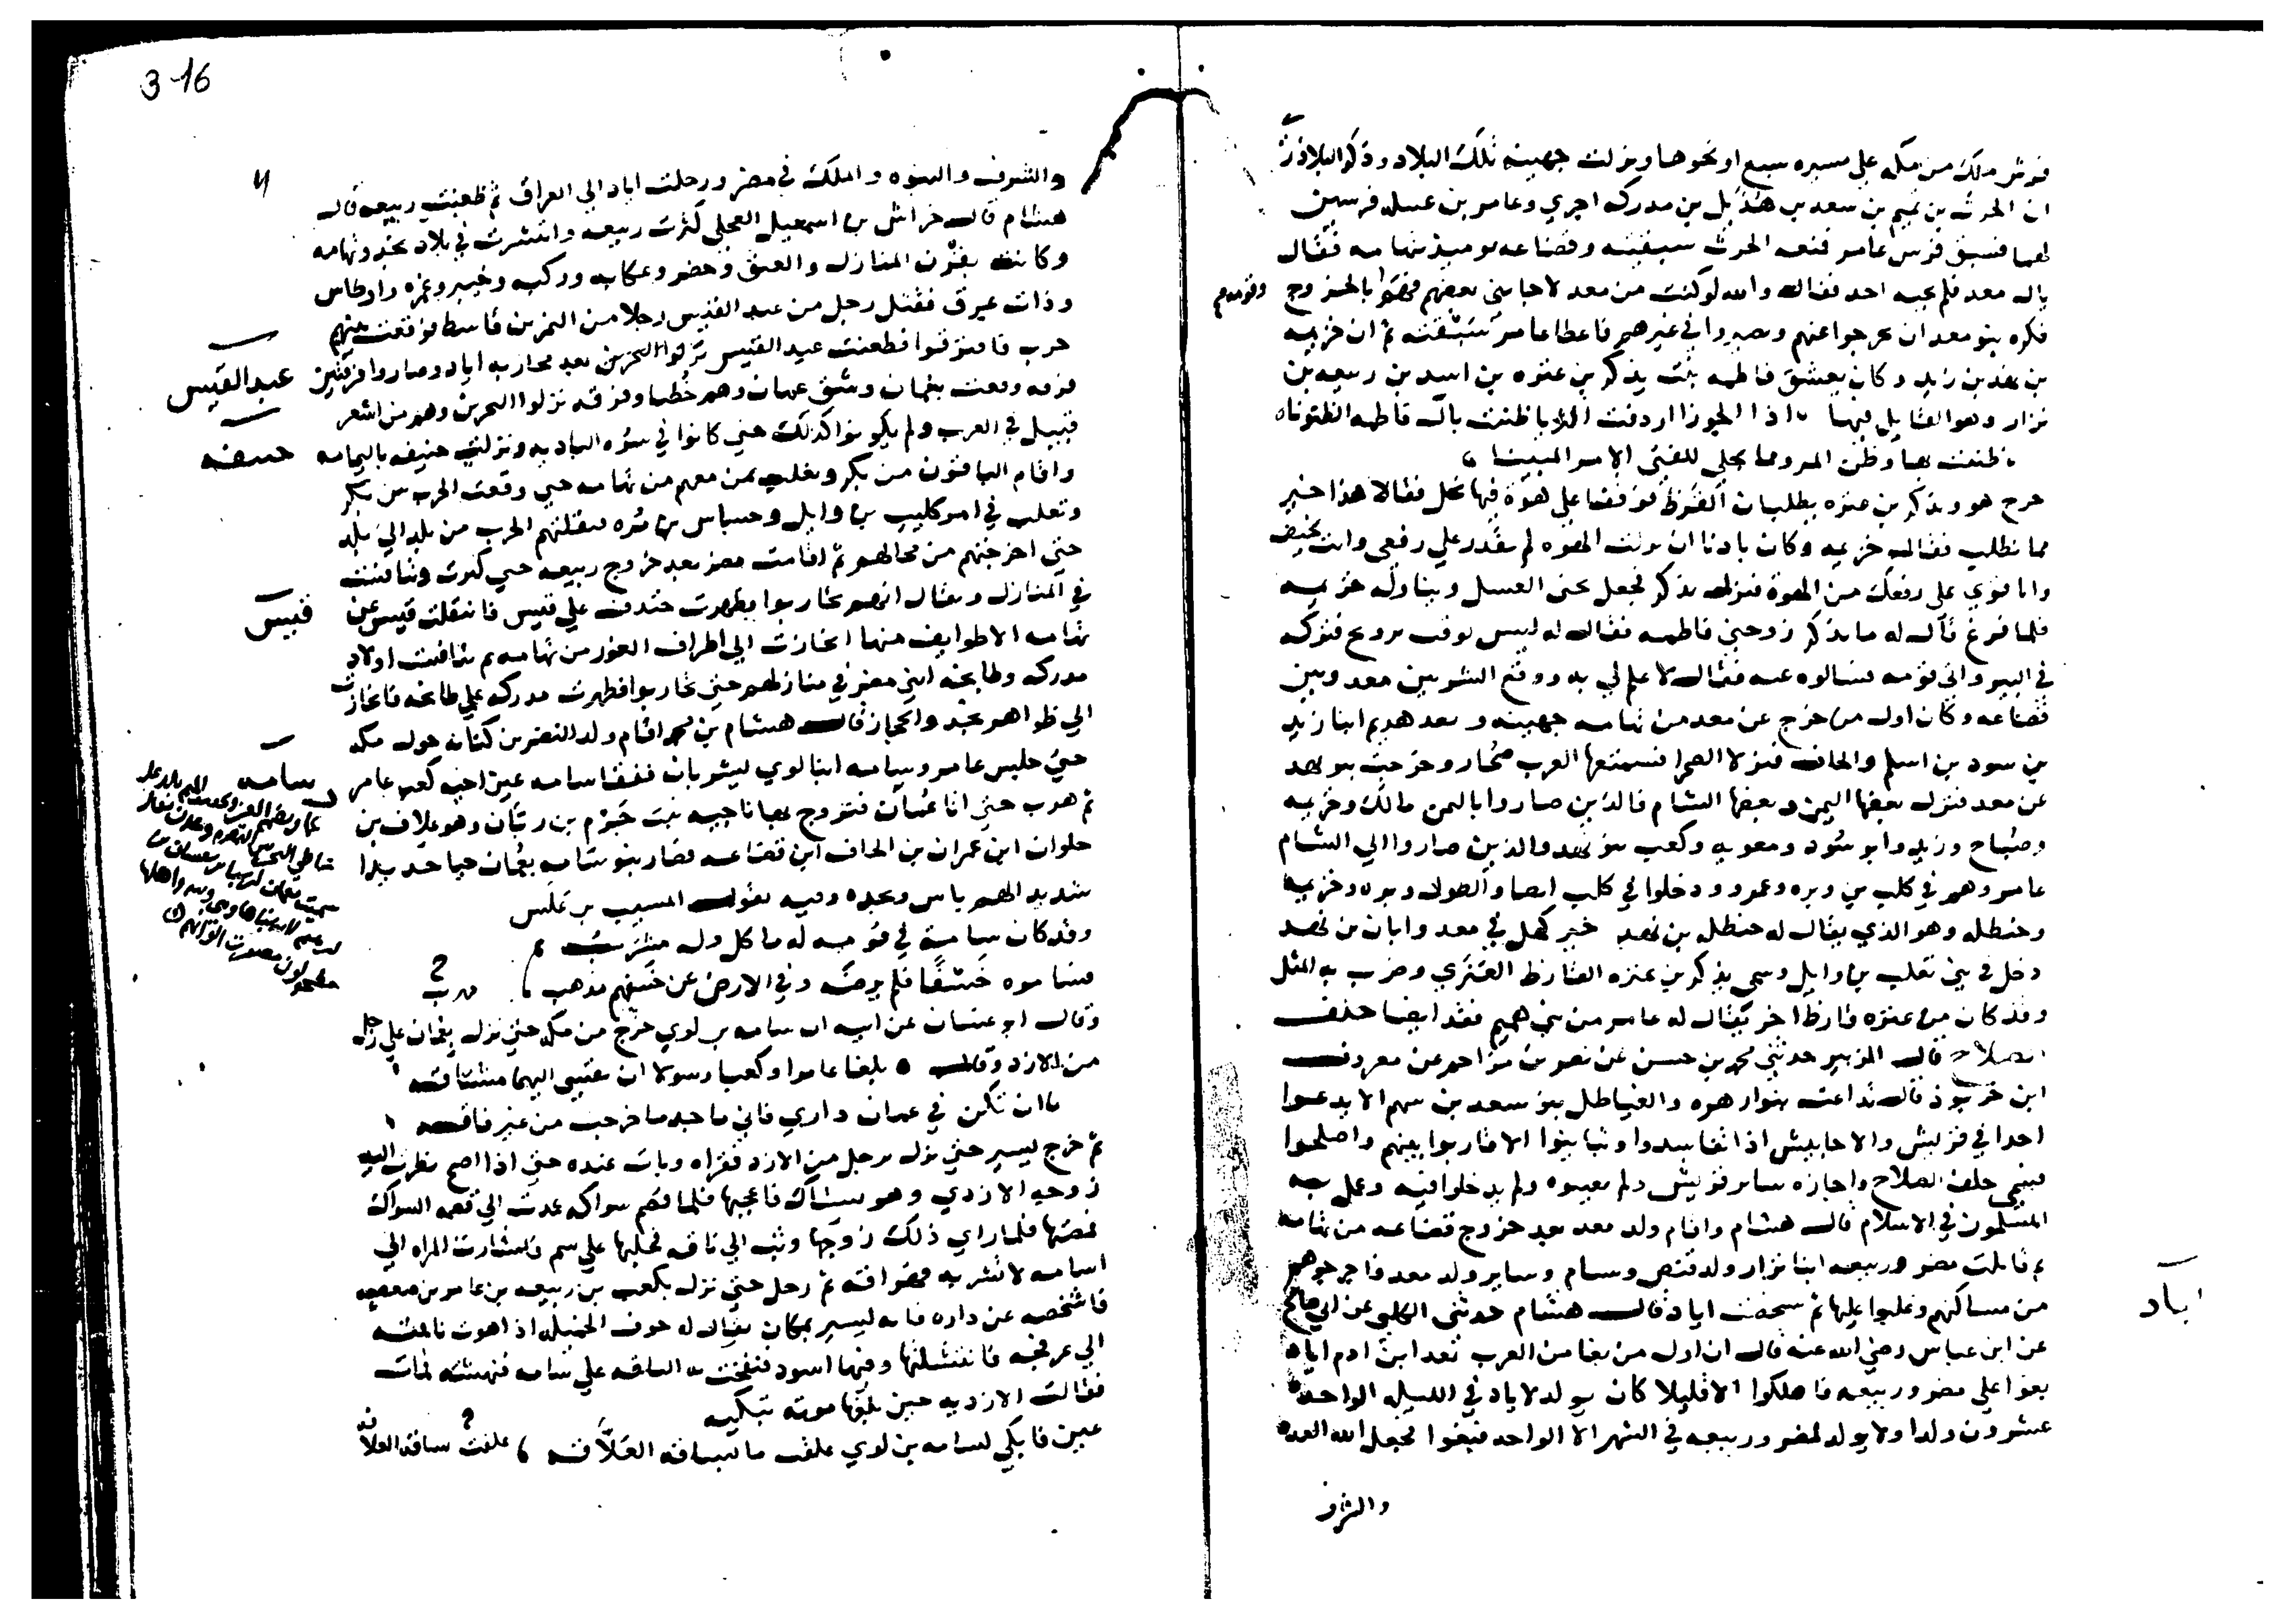 فوش ملك من مكه على مسيره سبع او نحوها ونزلت جهينه تلك البلاد وذكر البلاذري
ان الحرث بن تميم بن سعد بن هذيل بن مدركه اجري وعامر بن فرسين
لهما فسبق فرس عامر فمنعه الحرث سبقته وقضاعه يوميذ بتهامه فقال
يال معد فلم يجبه احد فقال والله لو كنت من معد لاجابني بعضهم فهموا بالخروج
فكره بنو معد ان يخرجوا عنهم ويصيروا في غيرهم فاعطا عامر سبقته ثم ان خزيمه
بن نهد بن زيد وكان يعشق فاطمه بنت يذكر بن عنزه بن اسد بن ربيعه بن
نزار وهو القايل فيها اذا الجوزا اردفت الثريا ظننت بآل فاطمه الظنونا
ظننت بها وظن المرو مما يجلي للفتى الامر المبينا
خرج هو ويذكر بن عنزه يطلبان القرظ فوقفا على هوة فيها نحل فقالا هذا خير
مما نطلب فقال خزيمه وكان بادنا ان نزلت الهوه لم تقدر على رفعي وانت نحيف
وانا قوي على رفعك من الهوة فنزل يذكر فجعل يجني العسل ويناول خزيمه
فلما فرغ قال له يا يذكر زوجني فاطمه فقال له ليس بوقت تزويج فتركه
في البير واتى قومه فسالوه عنه فقال لا علم لي به ووقع الشر بين معد وبين
قضاعه وكان اول من خرج عن معد من تهامه جهينه وسعد هذيم ابنا زيد
بن سود بن اسلم والحاف فنزلا الصحرا فسمتها العرب صحار وخرجت بنو نهد
عن معد فنزل بعضها اليمن وبعضها الشام فالذين صاروا باليمن مالك وخزيمه
وصباح وزيد وابو سود ومعويه وكعب بنو نهد والذين صاروا الى الشام
عامر وهم في كلب بن وبره وعمرو ودخلوا في كلب ايضا والطول وبره وخزيمه
وحنظله وهو الذي يقال له حنظله بن نهد خير كهل في معد وابان بن نهد
دخل في بني تغلب بن وايل وسمي يذكر بن عنزه القارظ العنزي وضرب به المثل
وقد كان من عنزه قارظ اخر يقال له عامر من بني هميم فقد ايضا حلف
الصلاح قال الزبير حدثني محمد بن حسن عن نصر بن مزاحم عن معروف
ابن خربوذ قال تداعت بنو زهره والغياطل بنو سعد بن سهم الا يدعوا
احدا في قريش والاحابيش اذا تفاسدوا وتباينوا الا قاربوا بينهم واصلحوا
فسمي حلف الصلاح واجازه ساير قريش ولم يعيبوه ولم يدخلوا فيه وعمل به
المسلمون في الاسلام قال هشام واقام ولد معد بعد خروج قضاعه من تهامه
ثم قاتلت مضر وربيعه ابنا نزار ولد قنص وسنام وساير ولد معد فاخرجوهم
من مساكنهم وغلبوا عليها ثم سخفت اياد قال هشام حدثني الكلبي عن ابي صالح
عن ابن عباس رضي الله عنه قال ان اول من بغا من العرب بعد ابن ادم اياد
بغوا على مضر وربيعه فاهلكوا الا قليلا كان يولد لاياد في الليله الواحده
عشرون ولدا ولا يولد لمضر وربيعه في الشهر الا الواحد فبغوا فجعل الله العدد
والشرف
اياد
3-16
والشرف والنبوه والملك في مضر ورحلت اياد الى العراق ثم ظعنت ربيعه قال
هشام قال خراش بن اسمعيل العجلي كثرت ربيعه وانتشرت في بلاد نجد وتهامه
وكانت بقرن المنازل والعتق وحضر وعكابه وركبه وخيبر وغمره واوطاس
وذات عرق فقتل رجل من عبد القيس رجلا من النمر بن قاسط فوقعت بينهم
حرب فافترقوا فظعنت عبد القيس نزلوا البحرين بعد محاربه اياد وصاروا فرقتين
فرقه وقعت بعمان وشق عمان وهم خطبا وفرقه نزلوا البحرين وهم من اشعر
قبيل في العرب ولم يكونوا كذلك حتى كانوا في سره الباديه ونزلت حنيفه باليمامه
واقام الباقون من بكر وتغلب بمن معهم من تهامه حتى وقعت الحرب بين بكر
وتغلب في امر كليب بن وايل وجساس بن مره فنقلتهم الحرب من بلد الى بلد
حتى اخرجتهم من محالهم ثم اقامت مضر بعد خروج ربيعه حتى كثرت وتنافست
في المنازل ويقال انهم تحاربوا وظهرت خندف على قيس فانتقلت قيس عن
تهامه الا طوايف منها انحازت الى اطراف الغور من تهامه ثم تنافست اولاد
مدركه وطابخه ابني مضر في منازلهم حتى تحاربوا فظهرت مدركه على طابخه فانحازت
الى ظواهر نجد والحجاز قال هشام بن محمد اقام ولد النضر بن كنانه حول مكه
حتى جلس عامر وسامه ابنا لوي يشربان ففقا سامه عين اخيه كعب عامر
ثم هرب حتى اتا عمان فتزوج بها ناجيه بنت جرم بن ربان وهو علاف بن
حلوان ابن عمران بن الحاف ابن قضاعه فصار بنو سامه بعمان حيا حريدا
شديد لهم باس ونجده وفيه يقول المسيب بن علس
وقد كان سامة في قومه له ماكل وله مشرب
فساموه خسفا فلم يرضه وفي الارض عن خسفهم مذهب
وقال ابو غسان عن ابيه ان سامه بن لوي خرج من مكه حتى نزل بعمان على رجل
من الازد وقال بلغا عامرا وكعبا رسولا ان نفسي اليهما مشتاقه
ان تكن في عمان داري فاني ماجد ما خرجت من غير فاقه
ثم خرج يسير حتى نزل برجل من الازد فقراه وبات عنده حتى اذا اصبح نظرت اليه
زوجه الازدي وهو يستاك فاعجبها فلما قصم سواكه عمدت الى قصمه السواك
فمصتها فلما راى ذلك زوجها وثب الى ناقه فحلبها على سم فاشارت المراه الى
سامه لا تشربه فهراقه ثم رحل حتى نزل بكعب بن ربيعه بن عامر بن صعصعه
فاشخصه عن داره فانه ليسير بمكان يقال له جوف الخميله اذ اهوت ناقته
الى عرفجه فانتشلتها وفيها اسود فنفخت الساقه على سامه فنهشته فمات
فقالت الازديه حين بلغها موته تبكيه
عين فابكي لسامه بن لوي علقت ما بساقه العلاقه علقت ساقه العلاقه
عبد القيس
حنيفه
قيس
سامه